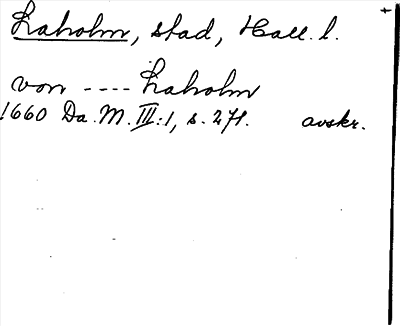 Laholm, stad, Hall. l.
von ---- Laholm
1660 Da. M. III:1, s. 271. avskr.